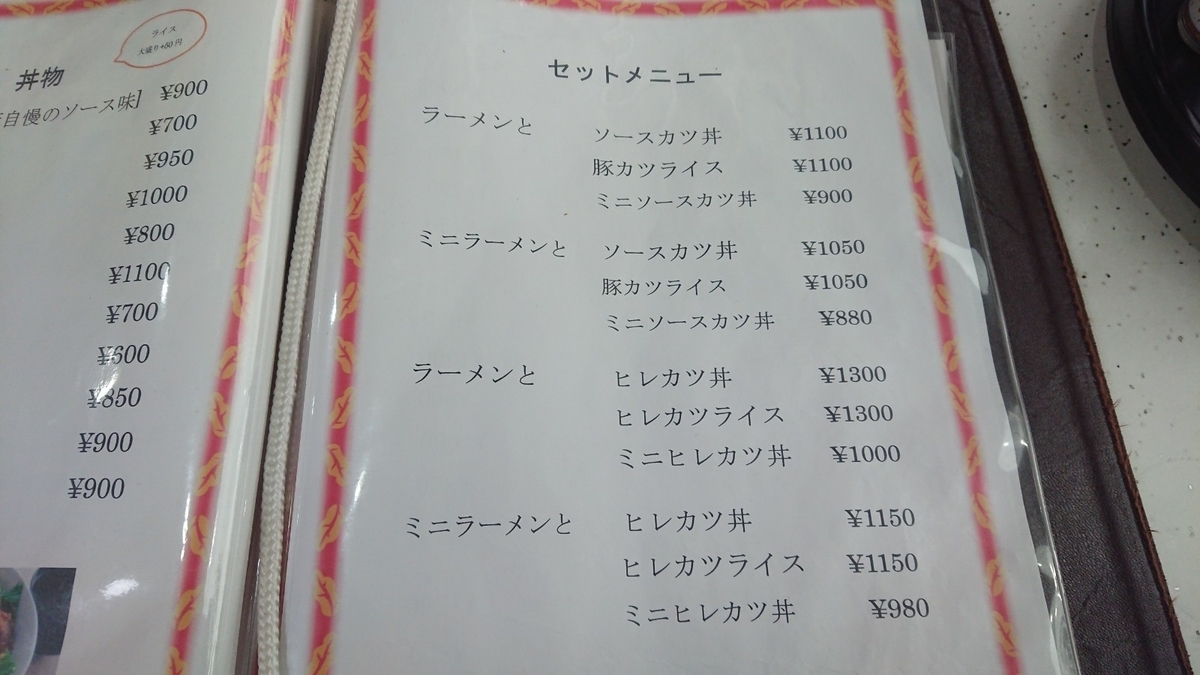 ライス
大盛り+60円
丼物
自慢のソース味] ¥900
¥700
¥950
¥1000
¥800
¥1100
¥700
¥600
¥850
¥900
¥900
セットメニュー
ラーメンと ソースカツ丼 ¥1100
豚カツライス ¥1100
ミニソースカツ丼 ¥900
ミニラーメンと ソースカツ丼 ¥1050
豚カツライス ¥1050
ミニソースカツ丼 ¥880
ラーメンと ヒレカツ丼 ¥1300
ヒレカツライス ¥1300
ミニヒレカツ丼 ¥1000
ミニラーメンと ヒレカツ丼 ¥1150
ヒレカツライス ¥1150
ミニヒレカツ丼 ¥980